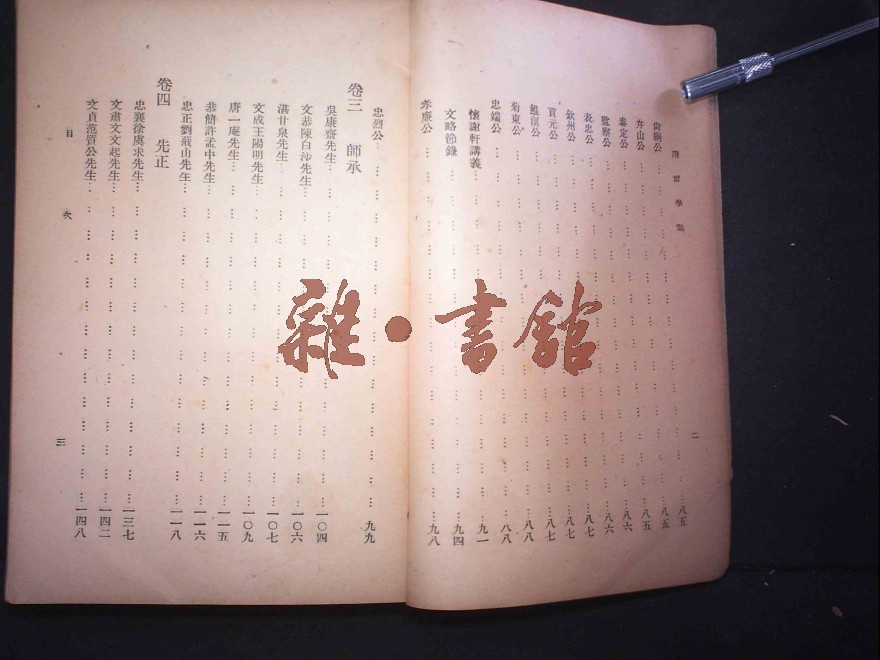 二
尚綱公⋯⋯八五
弁山公⋯⋯八五
泰定公⋯⋯八五
監察公⋯⋯八六
表忠公⋯⋯八六
欽州公⋯⋯八七
首元公⋯⋯八七
八七
菊東公⋯⋯八八
忠端公⋯⋯八八
懷謝軒講義⋯⋯九一
文略節錄⋯⋯九四
孝廉公⋯⋯九八
忠烈公⋯⋯九九
卷三 師承
吳康齋先生⋯⋯一〇四
文恭陳白沙先生⋯⋯一〇六
湛甘泉先生⋯⋯一〇七
文成王陽明先生⋯⋯一〇九
唐一庵先生⋯⋯一一五
恭簡許孟中先生⋯⋯一一六
忠正劉蕺山先生⋯⋯一一八
卷四 先正
忠襄徐虞求先生⋯⋯一三七
文肅文文起先生⋯⋯一四二
文貞范質公先生⋯⋯一四八
目次
三
雜·書館